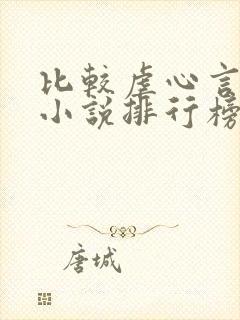 比较虐心言
小说排行榜
唐城